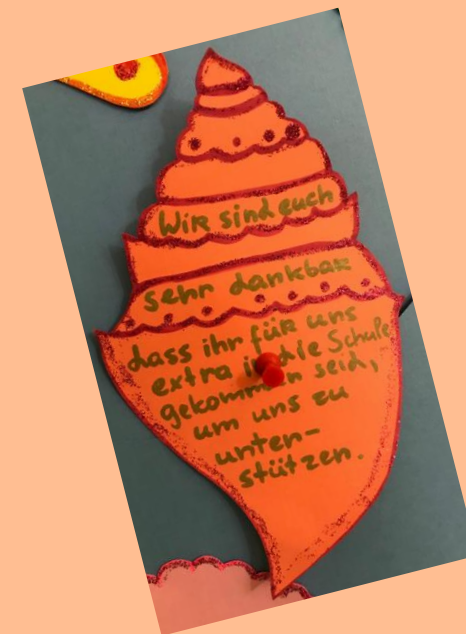 Wir sind euch
sehr dankbar
dass ihr für uns
extra in die Schule
gekommen seid,
um uns zu
unter-
stützen.